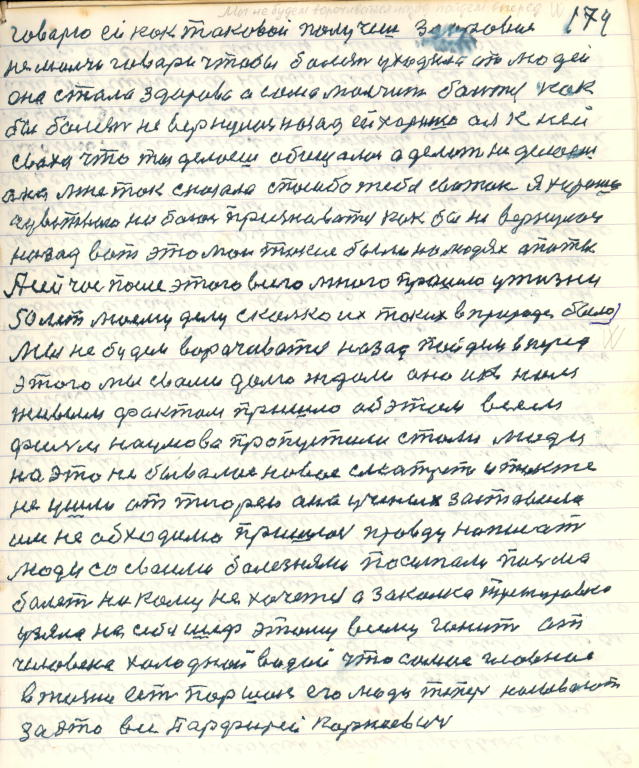 Мы не будем ворачиваться назад пойдем вперед 174
говорю ей как таковой получен здоровие
не молчи говори чтобы болезн уходила от людей
она стала здорова а сама молчит боится как
бы болезн не вернулась назад ей хорошо а я к ней
сваха что ты делаеш обищалас а делат не делаеш
она мне так сказала спасибо тебе сваток Я хорошо
чувствую но боюс признаватся как бы не вернулас
назад вот это мои такие были на людях опыты
А сейчас посе этого всего много прошло у жизни
50 лет моему делу сколко их таких в природе было)
Мы не будем ворачиватся назад пойдем вперед
этого мы свами долго ждали оно ик нам
живым фактом пришло об этим всем
фильм наумова пропустили стали люди
на это не бывалое новое смотрет и также
не ушли от теорею она ученых заставила
им не обходимо пришлос правду написат
люди со своими болезнями посыпали писма
болет никому не хочется а закалка тренировка
узяла на себя шеф этому всему гонит от
человека холодной водой что самое главное
в жизни ест Паршек его люди тепер называют
за это все Парфирей Карнеевич